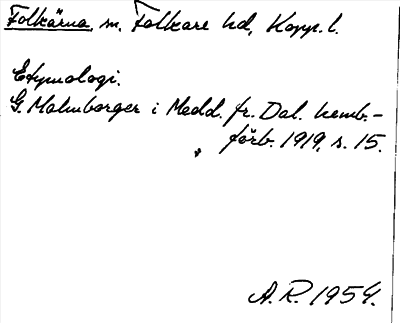 Folkärna, sn. Folkare hd, Kopp. l.
Etymologi.
G. Malmborger i Medd. fr. Dal. hemb.-
förb. 1919, s. 15.
A. R. 1954.